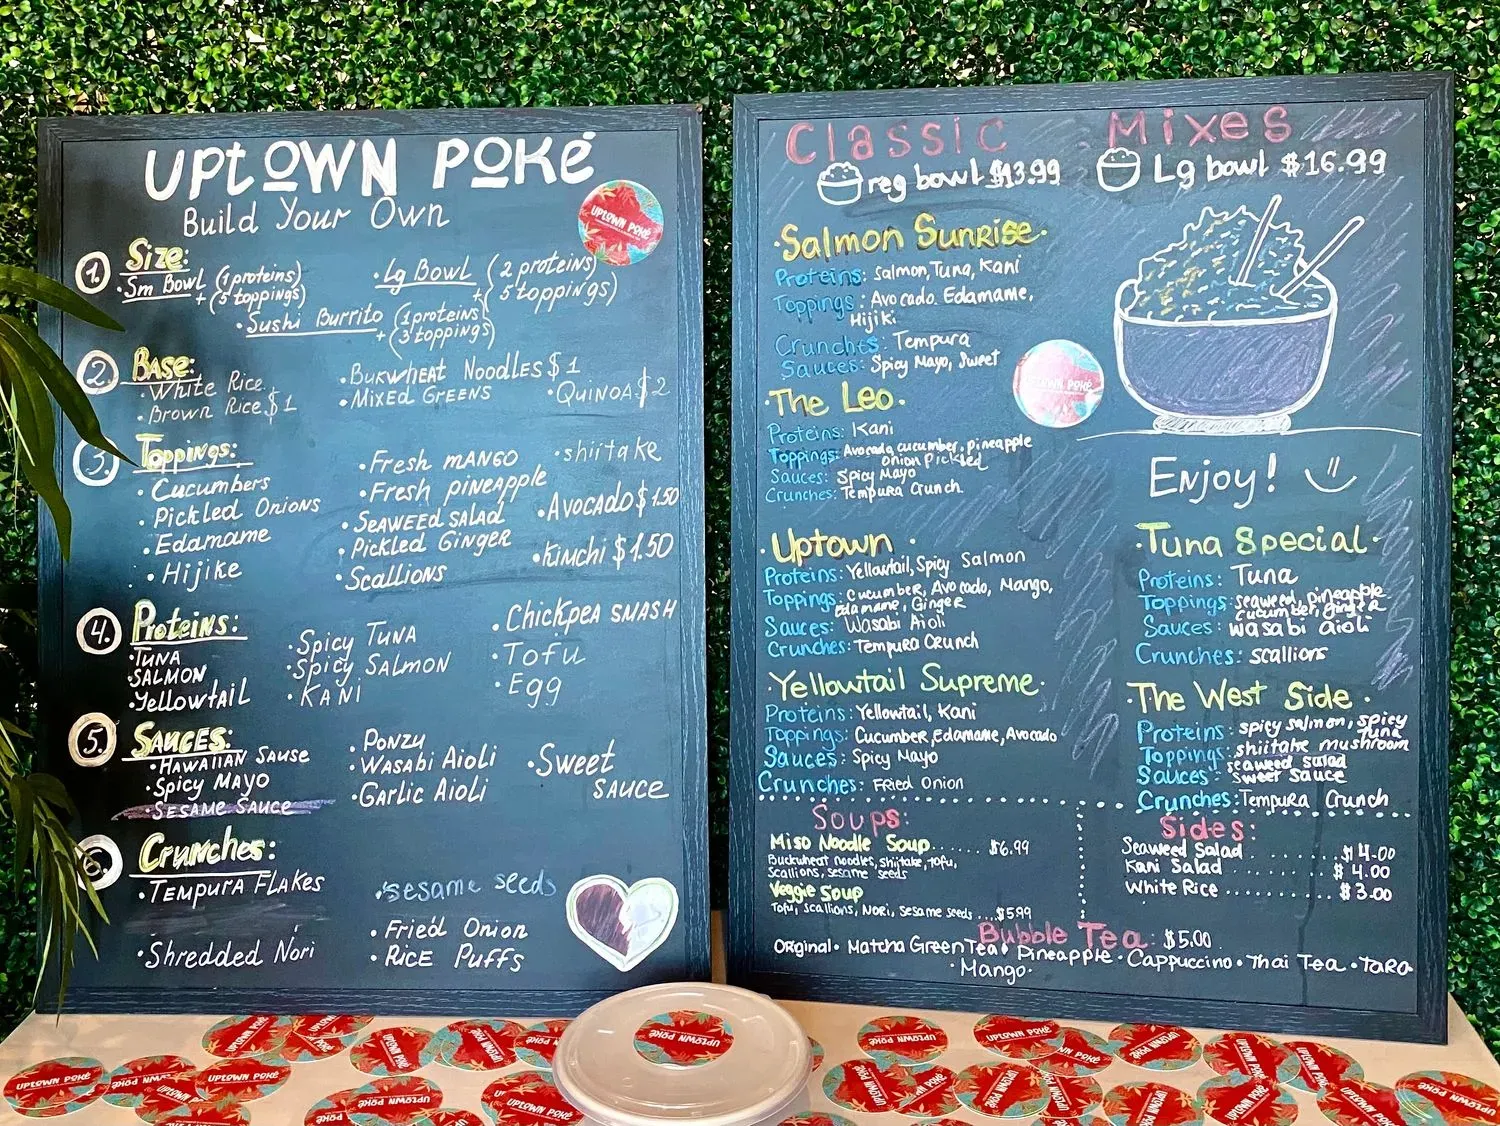 UPTOWN POKÉ
Build Your Own
UPTOWN POKÉ
1. Size:
· Sm Bowl (1 proteins) + (5 toppings)
· Lg Bowl (2 proteins) + 5 toppings)
· Sushi Burrito (1 proteins) + (3 toppings)
2. Base:
· White Rice
· Brown Rice $1
· Bukwheat Noodles $1
· Mixed Greens
· Quinoa $2
3. Toppings:
· Cucumbers
· Pickled Onions
· Edamame
· Hijike
· Fresh mango
· Fresh pineapple
· Seaweed salad
· Pickled Ginger
· Scallions
· shiitake
· Avocado $1.50
· Kimchi $1.50
4. Proteins:
· Tuna
· Salmon
· Yellowtail
· Spicy Tuna
· Spicy Salmon
· Kani
· Chickpea smash
· Tofu
· Egg
5. Sauces:
· Hawaiian Sause
· Spicy Mayo
· Sesame Sauce
· Ponzu
· Wasabi Aioli
· Garlic Aioli
· Sweet
sauce
6. Crunches:
· Tempura Flakes
· Shredded Nori
· sesame seeds
· Fried Onion
· Rice Puffs
Classic Mixes
reg bowl $13.99 Lg bowl $16.99
· Salmon Sunrise ·
Proteins: Salmon, Tuna, Kani
Toppings: Avocado. Edamame,
Hijiki
Crunches: Tempura
Sauces: Spicy Mayo, Sweet
UPTOWN POKÉ
The Leo ·
Proteins: Kani
Toppings: Avocado, cucumber, pineapple
onion Pickled
Sauces: Spicy Mayo
Crunches: Tempura Crunch
Enjoy!
· Uptown ·
Proteins: Yellowtail, Spicy Salmon
Toppings: Cucumber, Avocado, Mango,
Edamame, Ginger
Sauces: Wasabi Aioli
Crunches: Tempura Crunch
· Yellowtail Supreme ·
Proteins: Yellowtail, Kani
Toppings: Cucumber, Edamame, Avocado
Sauces: Spicy Mayo
Crunches: Fried Onion
· Tuna Special ·
Proteins: Tuna
Toppings: seaweed, pineapple
cucumber, ginger
Sauces: wasabi aioli
Crunches: scallions
· The West Side ·
Proteins: spicy salmon, spicy
tuna
Toppings: shiitake mushroom
seaweed salad
Sauces: sweet sauce
Crunches: Tempura Crunch
Soups:
Miso Noodle Soup ...... $6.99
Buckwheat noodles, shiitake, tofu,
scallions, sesame seeds
Veggie Soup
Tofu, scallions, Nori, sesame seeds ... $5.99
Sides:
Seaweed Salad ........ $4.00
Kani Salad .......... $4.00
White Rice .......... $3.00
Bubble Tea $5.00
Original · Matcha Green Tea · Pineapple · Cappuccino · Thai Tea · Taro
· Mango ·
UPTOWN POKÉ
UPTOWN POKÉ
UPTOWN POKÉ
UPTOWN POKÉ